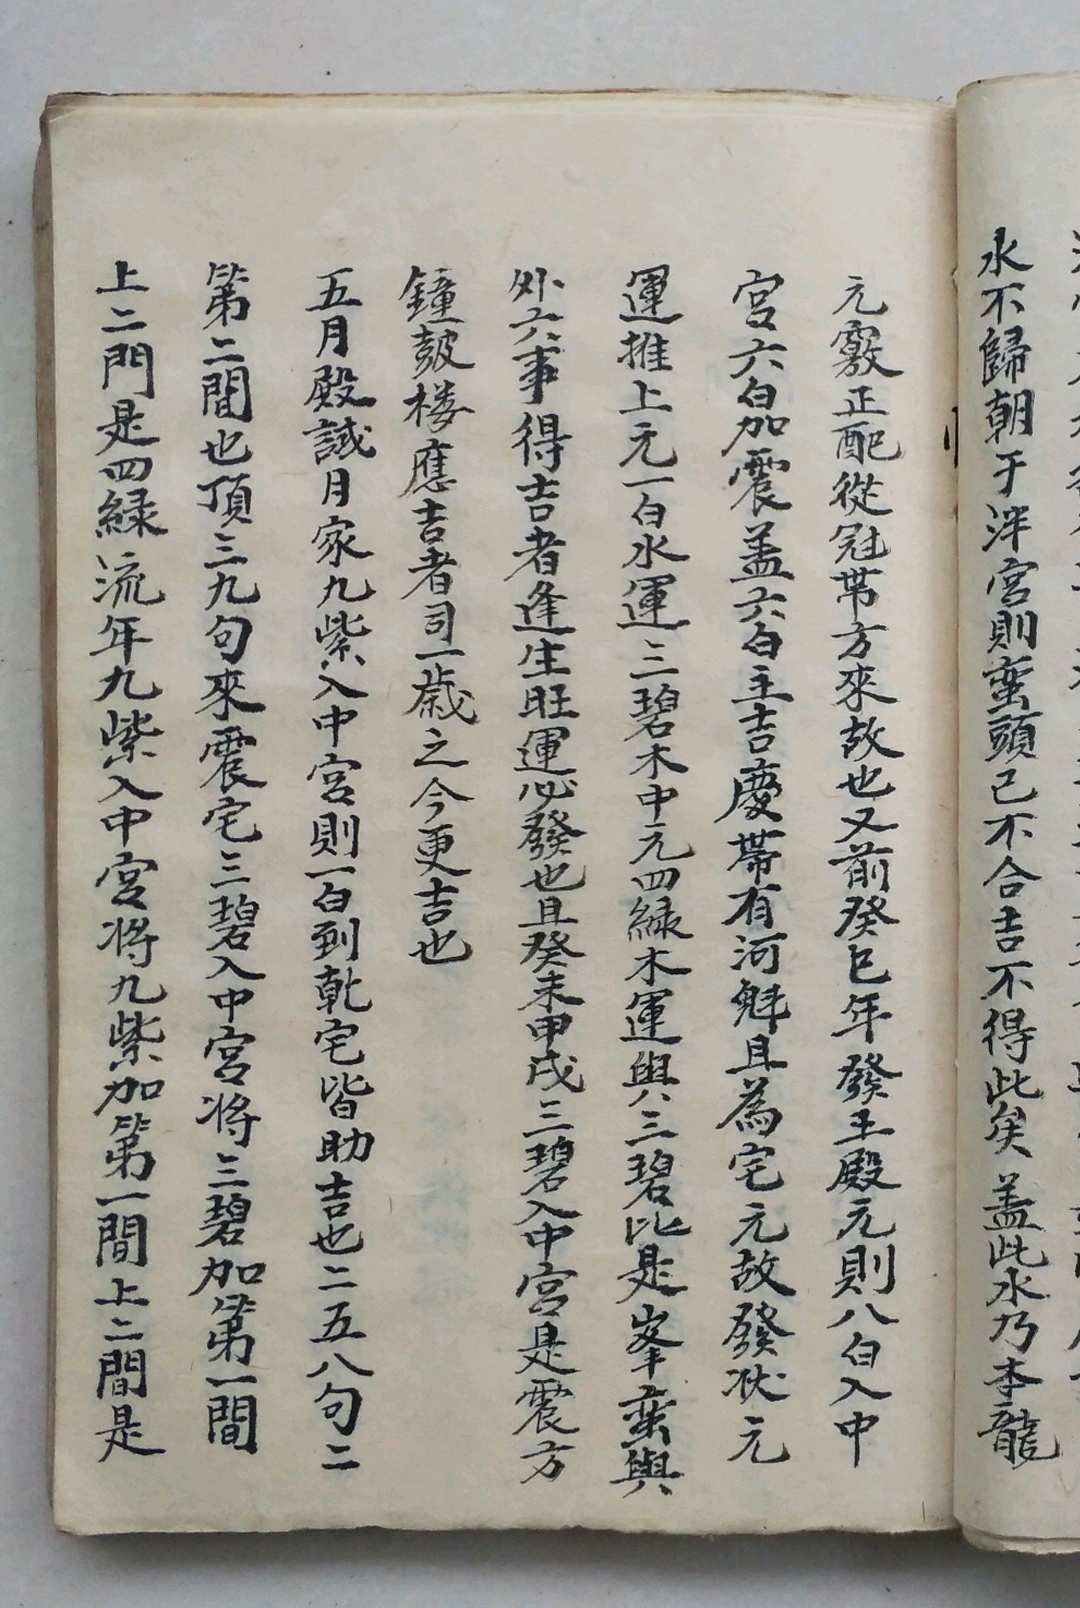 永不歸朝于泮宮則蛮頭已不合吉不得此矣盖此水乃本龍
元竅正配從冠帶方來故也又前癸巳年發王殿元則八白入中
宮六白加震盖六白主吉慶帶有河魁且為宅元故發狀元
運推上元一白水運三碧木中元四綠木運與三碧比是峯蛮與
外六事得吉者逢生旺運必發也且癸未甲戌三碧入中宮是震方
鐘皷楼應吉者司一歲之今更吉也
五月殿試月家九紫入中宮則一白到乾宅皆助吉也二五八句二
第二間也頂三九句來震宅三碧入中宮将三碧加第一間
上二門是四綠流年九紫入中宮将九紫加第一間上二間是